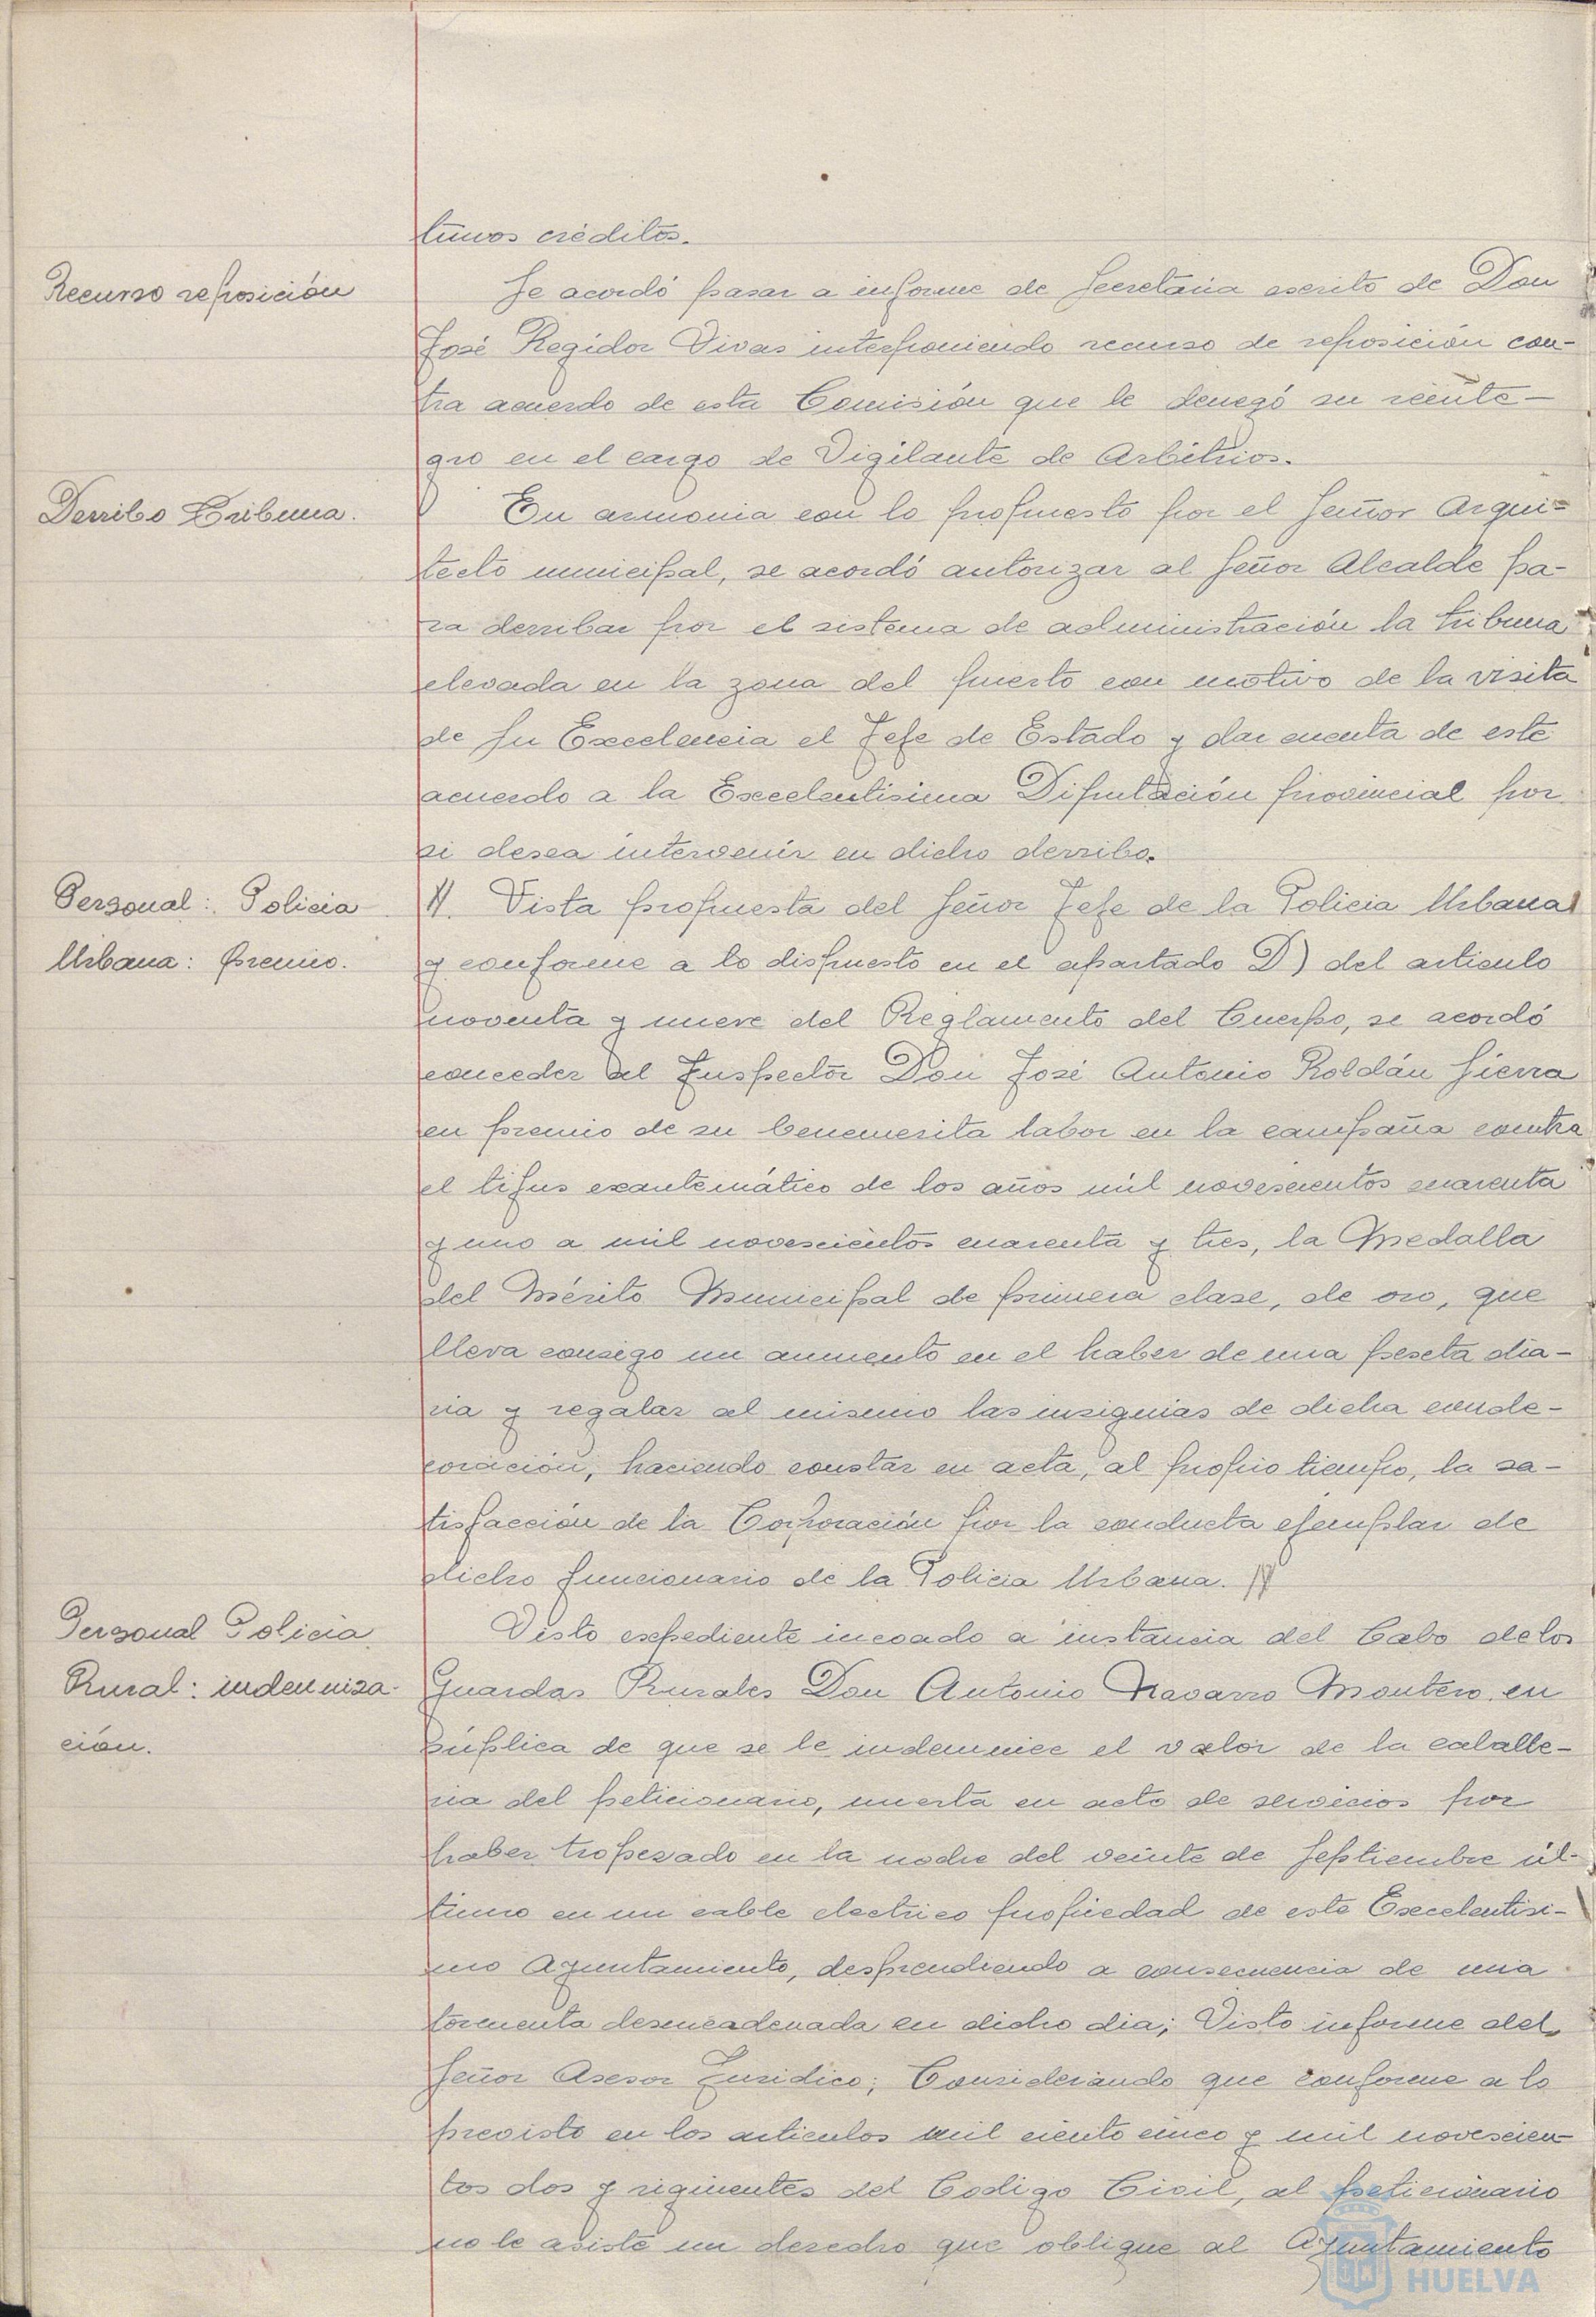 tunos créditos.
Recurso reposición
Se acordó pasar a informe de Secretaria escrito de Don
José Regidor Vivas interponiendo recurso de reposición con-
tra acuerdo de esta Comisión que le denegó su reinte-
gro en el cargo de Vigilante de Arbitrios.
Derribo Tribuna.
En armonia con lo propuesto por el Señor Arqui-
tecto municipal, se acordó autorizar al Señor Alcalde pa-
ra derribar por el sistema de administración la tribuna
elevada en la zona del puerto con motivo de la visita
de Su Excelencia el Jefe de Estado y dar cuenta de este
acuerdo a la Excelentisima Diputación provincial por
si desea intervenir en dicho derribo.
Personal: Policia
Urbana: premio.
Vista propuesta del Señor Jefe de la Policia Urbana
y conforme a lo dispuesto en el apartado D) del articulo
noventa y nueve del Reglamento del Cuerpo, se acordó
conceder al Inspector Don José Antonio Roldán Sierra
en premio de su benemerita labor en la campaña contra
el tifus exantemático de los años mil novescientos cuarenta
y uno a mil novescientos cuarenta y tres, la Medalla
del Mérito Municipal de primera clase, de oro, que
lleva consigo un aumento en el haber de una peseta dia-
ria y regalar al mismo las insignias de dicha conde-
coración, haciendo constar en acta, al propio tiempo, la sa-
tisfacción de la Corporación por la conducta ejemplar de
dicho funcionario de la Policia Urbana.
Personal Policia
Rural: indemniza-
ción.
Visto expediente incoado a instancia del Cabo de los
Guardas Rurales Don Antonio Navarro Montero en
súplica de que se le indemnice el valor de la caballe-
ria del peticionario, muerta en acto de servicios por
haber tropezado en la noche del veinte de Septiembre úl-
timo en un cable electrico propiedad de este Excelentisi-
mo Ayuntamiento, desprendiendo a consecuencia de una
tormenta desencadenada en dicho dia; Visto informe del
Señor Asesor Juridico; Considerando que conforme a lo
previsto en los articulos mil ciento cinco y mil novescien-
tos dos y siguientes del Codigo Civil, al peticionario
no le asiste un derecho que obligue al Ayuntamiento
HUELVA